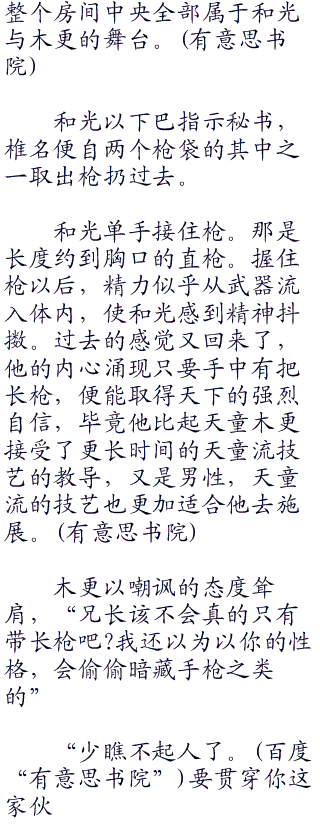 整个房间中央全部属于和光
与木更的舞台。(有意思书
院)
和光以下巴指示秘书，
椎名便自两个枪袋的其中之
一取出枪扔过去。
和光单手接住枪。那是
长度约到胸口的直枪。握住
枪以后，精力似乎从武器流
入体内，使和光感到精神抖
擞。过去的感觉又回来了，
他的内心涌现只要手中有把
长枪，便能取得天下的强烈
自信，毕竟他比起天童木更
接受了更长时间的天童流技
艺的教导，又是男性，天童
流的技艺也更加适合他去施
展。(有意思书院)
木更以嘲讽的态度耸
肩，“兄长该不会真的只有
带长枪吧?我还以为以你的性
格，会偷偷暗藏手枪之类
的”
“少瞧不起人了。(百度
“有意思书院”)要贯穿你这
家伙